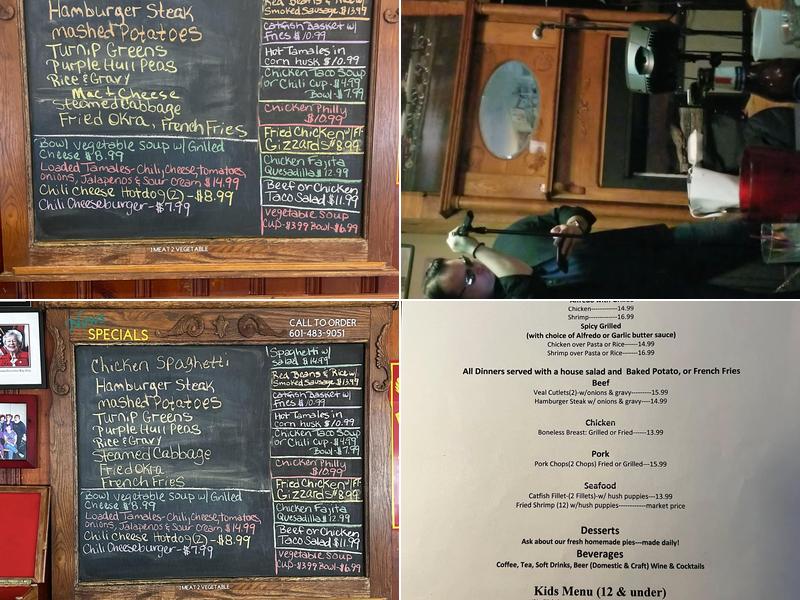 Hamburger Steak
mashed Potatoes
Turnip Greens
Purple Hull Peas
Rice & Gravy
Mac + Cheese
Steamed Cabbage
Fried Okra, French Fries
Bowl vegetable Soup w/ Grilled
Cheese $8.99
Loaded Tamales-Chili, Cheese, tomatoes,
onions, Jalapenos & Sour Cream $14.99
Chili Cheese Hotdog(2)-$8.99
Chili Cheeseburger-$7.99
Red Beans & Rice w/
Smoked Sausage $13.99
Catfish Basket w/
Fries $10.99
Hot Tamales in
corn husk $10.99
Chicken Taco Soup
or Chili Cup-$4.99
Bowl-$7.99
Chicken Philly
$10.99
Fried Chicken w/FF
Gizzards $8.99
Chicken Fajita
Quesadilla $12.99
Beef or Chicken
Taco Salad $11.99
Vegetable Soup
Cup-$3.99 Bowl-$6.99
1 MEAT 2 VEGETABLE
SPECIALS
CALL TO ORDER
601-483-9051
Chicken Spaghetti
Hamburger Steak
mashed Potatoes
Turnip Greens
Purple Hull Peas
Rice & Gravy
Steamed Cabbage
Fried Okra
French Fries
Bowl vegetable Soup w/ Grilled
Cheese $8.99
Loaded Tamales-Chili, Cheese, tomatoes,
onions, Jalapenos & Sour Cream $14.99
Chili Cheese Hotdog(2)-$8.99
Chili Cheeseburger-$7.99
Spaghetti w/
Salad $14.99
Red Beans & Rice w/
Smoked Sausage $13.99
Catfish Basket w/
Fries $10.99
Hot Tamales in
corn husk $10.99
Chicken Taco Soup
or Chili Cup-$4.99
Bowl-$7.99
Chicken Philly
$10.99
Fried Chicken w/FF
Gizzards $8.99
Chicken Fajita
Quesadilla $12.99
Beef or Chicken
Taco Salad $11.99
Vegetable Soup
Cup-$3.99 Bowl-$6.99
1 MEAT 2 VEGETABLE
Alfredo with Grilled
Chicken-------------14.99
Shrimp--------------16.99
Spicy Grilled
(with choice of Alfredo or Garlic butter sauce)
Chicken over Pasta or Rice------14.99
Shrimp over Pasta or Rice------16.99
All Dinners served with a house salad and Baked Potato, or French Fries
Beef
Veal Cutlets(2)-w/onions & gravy----------15.99
Hamburger Steak w/ onions & gravy----14.99
Chicken
Boneless Breast: Grilled or Fried------13.99
Pork
Pork Chops(2 Chops) Fried or Grilled---15.99
Seafood
Catfish Fillet-(2 Fillets)-w/ hush puppies---13.99
Fried Shrimp (12) w/hush puppies-----------market price
Desserts
Ask about our fresh homemade pies---made daily!
Beverages
Coffee, Tea, Soft Drinks, Beer (Domestic & Craft) Wine & Cocktails
Kids Menu (12 & under)